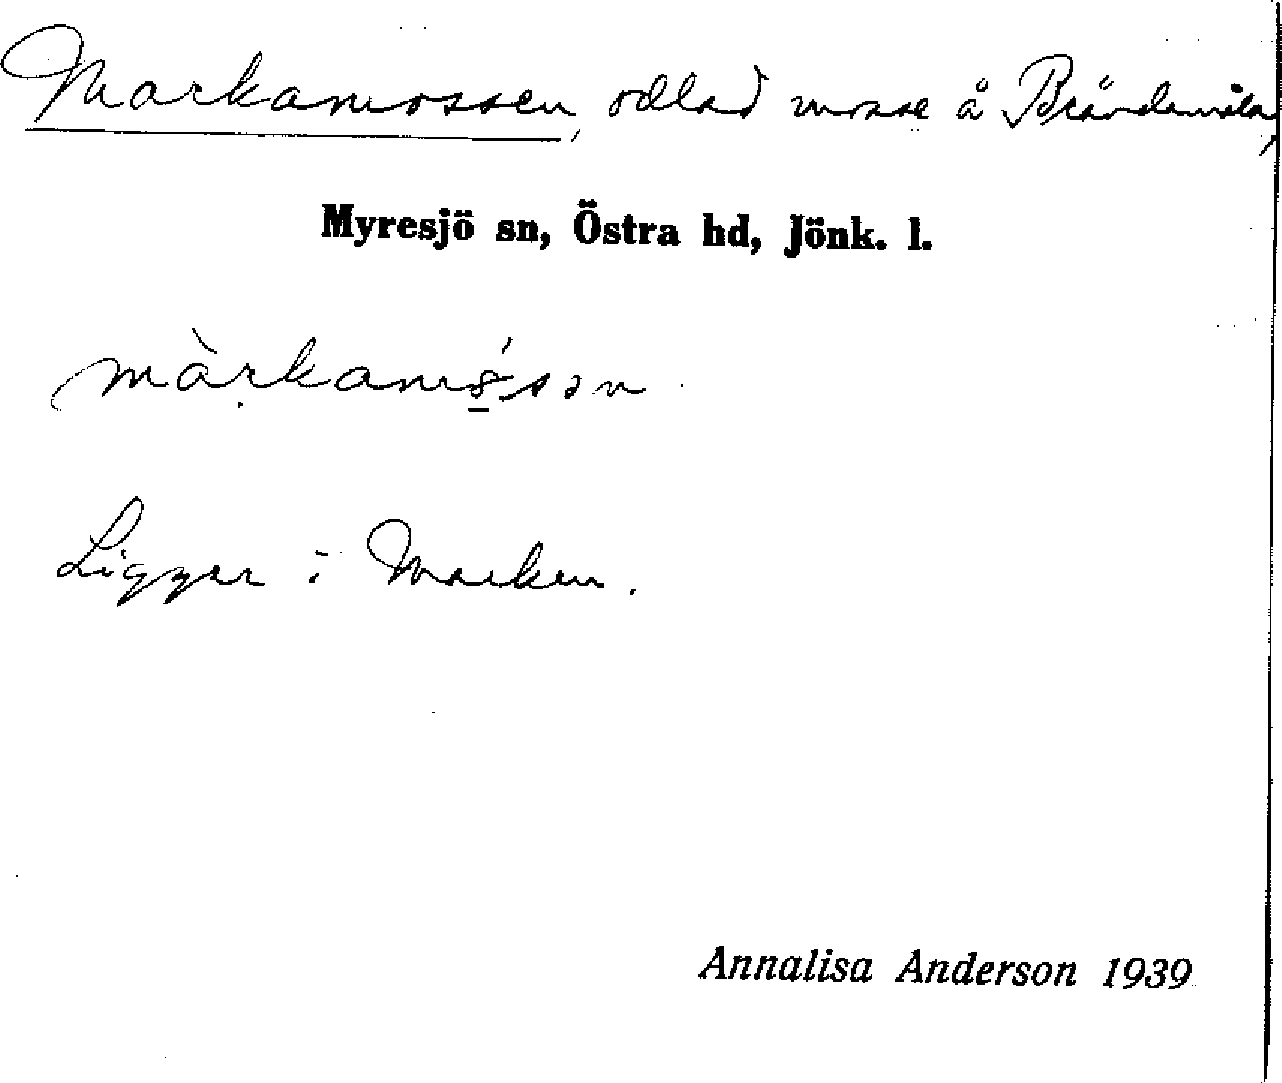 Markamossen, odlad mosse å Brändemåla,
Myresjö sn, Östra hd, Jönk. l.
Ligger i Marken.
Annalisa Anderson 1939